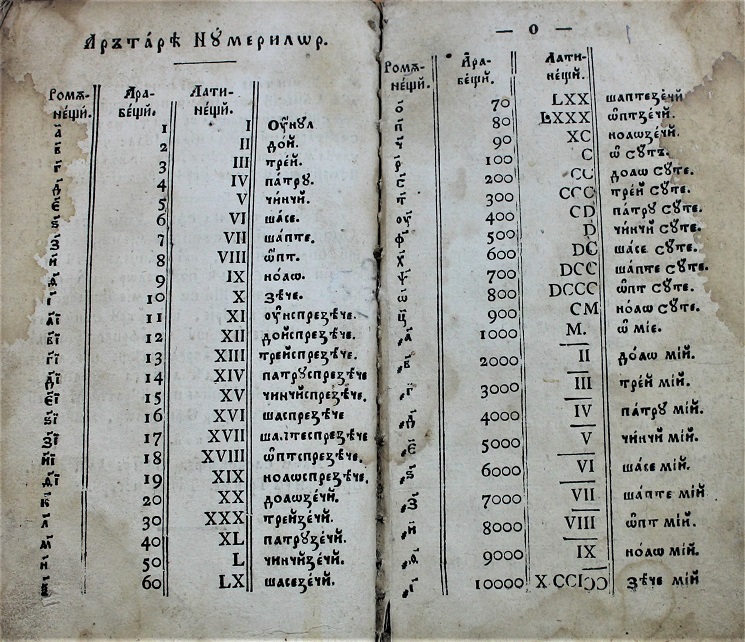 Арътáрѣ Нýмерилѡр.
Ромѫ- Ара- Лати-
нéщй. бéщй. нéщй.
а҃ 1 I ѹ҆́нул
в҃ 2 II дóй.
г҃ 3 III трéй.
д҃ 4 IV пáтру.
є҃ 5 V чи́нчй.
ѕ҃ 6 VI шáсе.
з҃ 7 VII шáпте.
и҃ 8 VIII ѡ҆́пт.
9 IX нóаѡ.
і҃ 10 X зѣ́че.
а҃і 11 XI ѹ҆нспрезѣ́че.
в҃і 12 XII дойспрезѣ́че.
г҃і 13 XIII трейспрезѣ́че.
д҃і 14 XIV патруспрезѣ́че
є҃і 15 XV чинчйспрезѣ́че.
ѕ҃і 16 XVI шаспрезѣ́че
з҃і 17 XVII шаптеспрезѣ́че
и҃і 18 XVIII ѡ҆птспрезѣ́че.
ѳ҃і 19 XIX ноаѡспрезѣ́че.
к҃ 20 XX доаѡзéчй.
л҃ 30 XXX трейзéчй.
м҃ 40 XL патрузéчй.
н҃ 50 L чинчйзéчй.
60 LX шасезéчй.
— 0 —
Ромѫ- Ара- Лати-
нéщй. бéщй. нéщй.
о҃ 70 LXX шаптезéчй
п҃ 80 LXXX ѡ҆птзéчй.
ч҃ 90 XC ноаѡзéчй.
р҃ 100 C ѡ҆ сутъ.
с҃ 200 CC дóаѡ сýте.
т҃ 300 CCC трéй сýте.
ѹ҃ 400 CD пáтру сýте.
ф҃ 500 D чи́нчй сýте.
х҃ 600 DC шáсе сýте.
ѱ҃ 700 DCC шáпте сýте.
ѡ҃ 800 DCCC ѡ҆пт сýте.
ц҃ 900 CM нóаѡ сýте.
҂а҃ 1000 M. ѡ҆ мíе.
҂в҃ 2000 II дóаѡ мíй.
҂г҃ 3000 III трéй мíй.
҂д҃ 4000 IV пáтру мíй.
҂є҃ 5000 V чи́нчй мíй.
҂ѕ҃ 6000 VI шáсе мíй.
҂з҃ 7000 VII шáпте мíй
҂и҃ 8000 VIII ѡ҆пт мíй.
҂ѳ҃ 9000 IX нóаѡ мíй.
҂і҃ 10000 X CCIƆƆ зѣ́че мíй